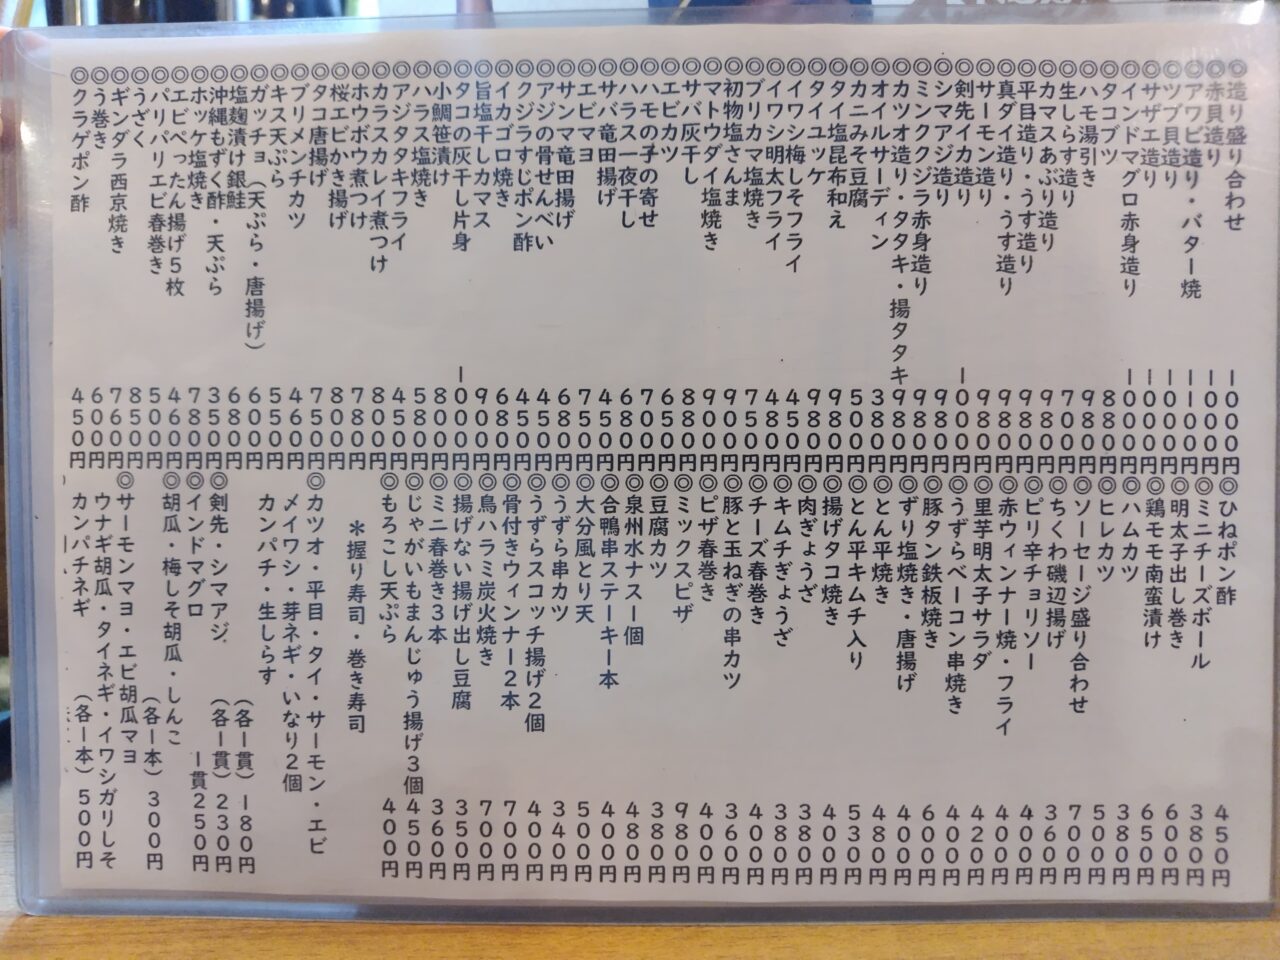 ◎造り盛り合わせ 1000円
◎赤貝造り 1000円
◎アワビ造り・バター焼 1100円
◎ツブ貝造り 1000円
◎サザエ造り 1000円
◎インドマグロ赤身造り 1000円
◎タコブツ 880円
◎ハモ湯引き 980円
◎生しらす造り 700円
◎カマスあぶり造り 980円
◎平目造り・うす造り 980円
◎真ダイ造り・うす造り 980円
◎サーモン造り 980円
◎剣先イカ造り 1000円
◎シマアジ造り 980円
◎ミンククジラ赤身造り 980円
◎カツオ造り・タタキ・揚タタキ 980円
◎オイルサーディン 380円
◎カニみそ豆腐 500円
◎タイ塩昆布和え 980円
◎タイユッケ 980円
◎イワシ梅しそフライ 450円
◎イワシ明太フライ 480円
◎ブリカマ塩焼き 750円
◎初物塩さんま 900円
◎マトウダイ塩焼き 900円
◎サバ灰干し 880円
◎エビカツ 650円
◎ハモの子の寄せ 700円
◎ハラス一夜干し 680円
◎サバ竜田揚げ 450円
◎エビマヨ 750円
◎サンマ竜田揚げ 680円
◎アジの骨せんべい 450円
◎クジラすじポン酢 450円
◎イカゴロ焼き 680円
◎旨塩干しカマス 900円
◎タコの灰干し片身 1000円
◎小鯛笹漬け 800円
◎ハラス塩焼き 580円
◎アジタタキフライ 450円
◎カラスカレイ煮つけ 800円
◎ホウボウ煮つけ 780円
◎桜エビかき揚げ 800円
◎タコ唐揚げ 750円
◎ブリメンチカツ 460円
◎キス天ぷら 550円
◎ガッチョ（天ぷら・唐揚げ） 600円
◎塩麹漬け銀鮭 680円
◎沖縄もずく酢・天ぷら 350円
◎ホッケ塩焼き 780円
◎エビぺったん揚げ5枚 460円
◎パリパリエビ春巻き 500円
◎うざく 850円
◎ギンダラ西京焼き 760円
◎う巻き 600円
◎クラゲポン酢 450円
◎ひねポン酢 450円
◎ミニチーズボール 380円
◎明太子出し巻き 600円
◎鶏モモ南蛮漬け 650円
◎ハムカツ 380円
◎ヒレカツ 500円
◎ソーセージ盛り合わせ 700円
◎ちくわ磯辺揚げ 360円
◎ピリ辛チョリソー 400円
◎赤ウィンナー焼・フライ 400円
◎里芋明太子サラダ 420円
◎うずらベーコン串焼き 400円
◎豚タン鉄板焼き 600円
◎ずり塩焼き・唐揚げ 400円
◎とん平焼き 480円
◎とん平キムチ入り 530円
◎揚げタコ焼き 400円
◎肉ぎょうざ 380円
◎キムチぎょうざ 380円
◎チーズ春巻き 400円
◎豚と玉ねぎの串カツ 360円
◎ピザ春巻き 400円
◎ミックスピザ 980円
◎豆腐カツ 380円
◎泉州水ナス一個 480円
◎合鴨串ステーキ一本 400円
◎大分風とり天 500円
◎うずら串カツ 340円
◎うずらスコッチ揚げ2個 400円
◎骨付きウィンナー2本 700円
◎鳥ハラミ炭火焼き 700円
◎揚げない揚げ出し豆腐 350円
◎ミニ春巻き3本 360円
◎じゃがいもまんじゅう揚げ3個 450円
◎もろこし天ぷら 400円
＊握り寿司・巻き寿司
◎カツオ・平目・タイ・サーモン・エビ
メイワシ・芽ネギ・いなり2個
カンパチ・生しらす
（各一貫）180円
◎剣先・シマアジ （各一貫）230円
◎インドマグロ 一貫250円
◎胡瓜・梅しそ胡瓜・しんこ
（各一本）300円
◎サーモンマヨ・エビ胡瓜マヨ
ウナギ胡瓜・タイネギ・イワシガリしそ
カンパチネギ （各一本）500円